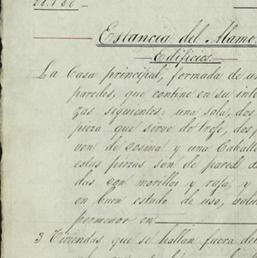 Estancia del Alamo
Edificios.
La Casa principal, formada de
paredes, que contine en su inte
zas siguientes: una sala, dos
pieza que sirve de troje, dos
ven de cosina y una Caballe
estas piezas son de pared de
das con morillos y raja, y
en buen estado de uso,
pormenor en
3 Viviendas que se hallan fuera de